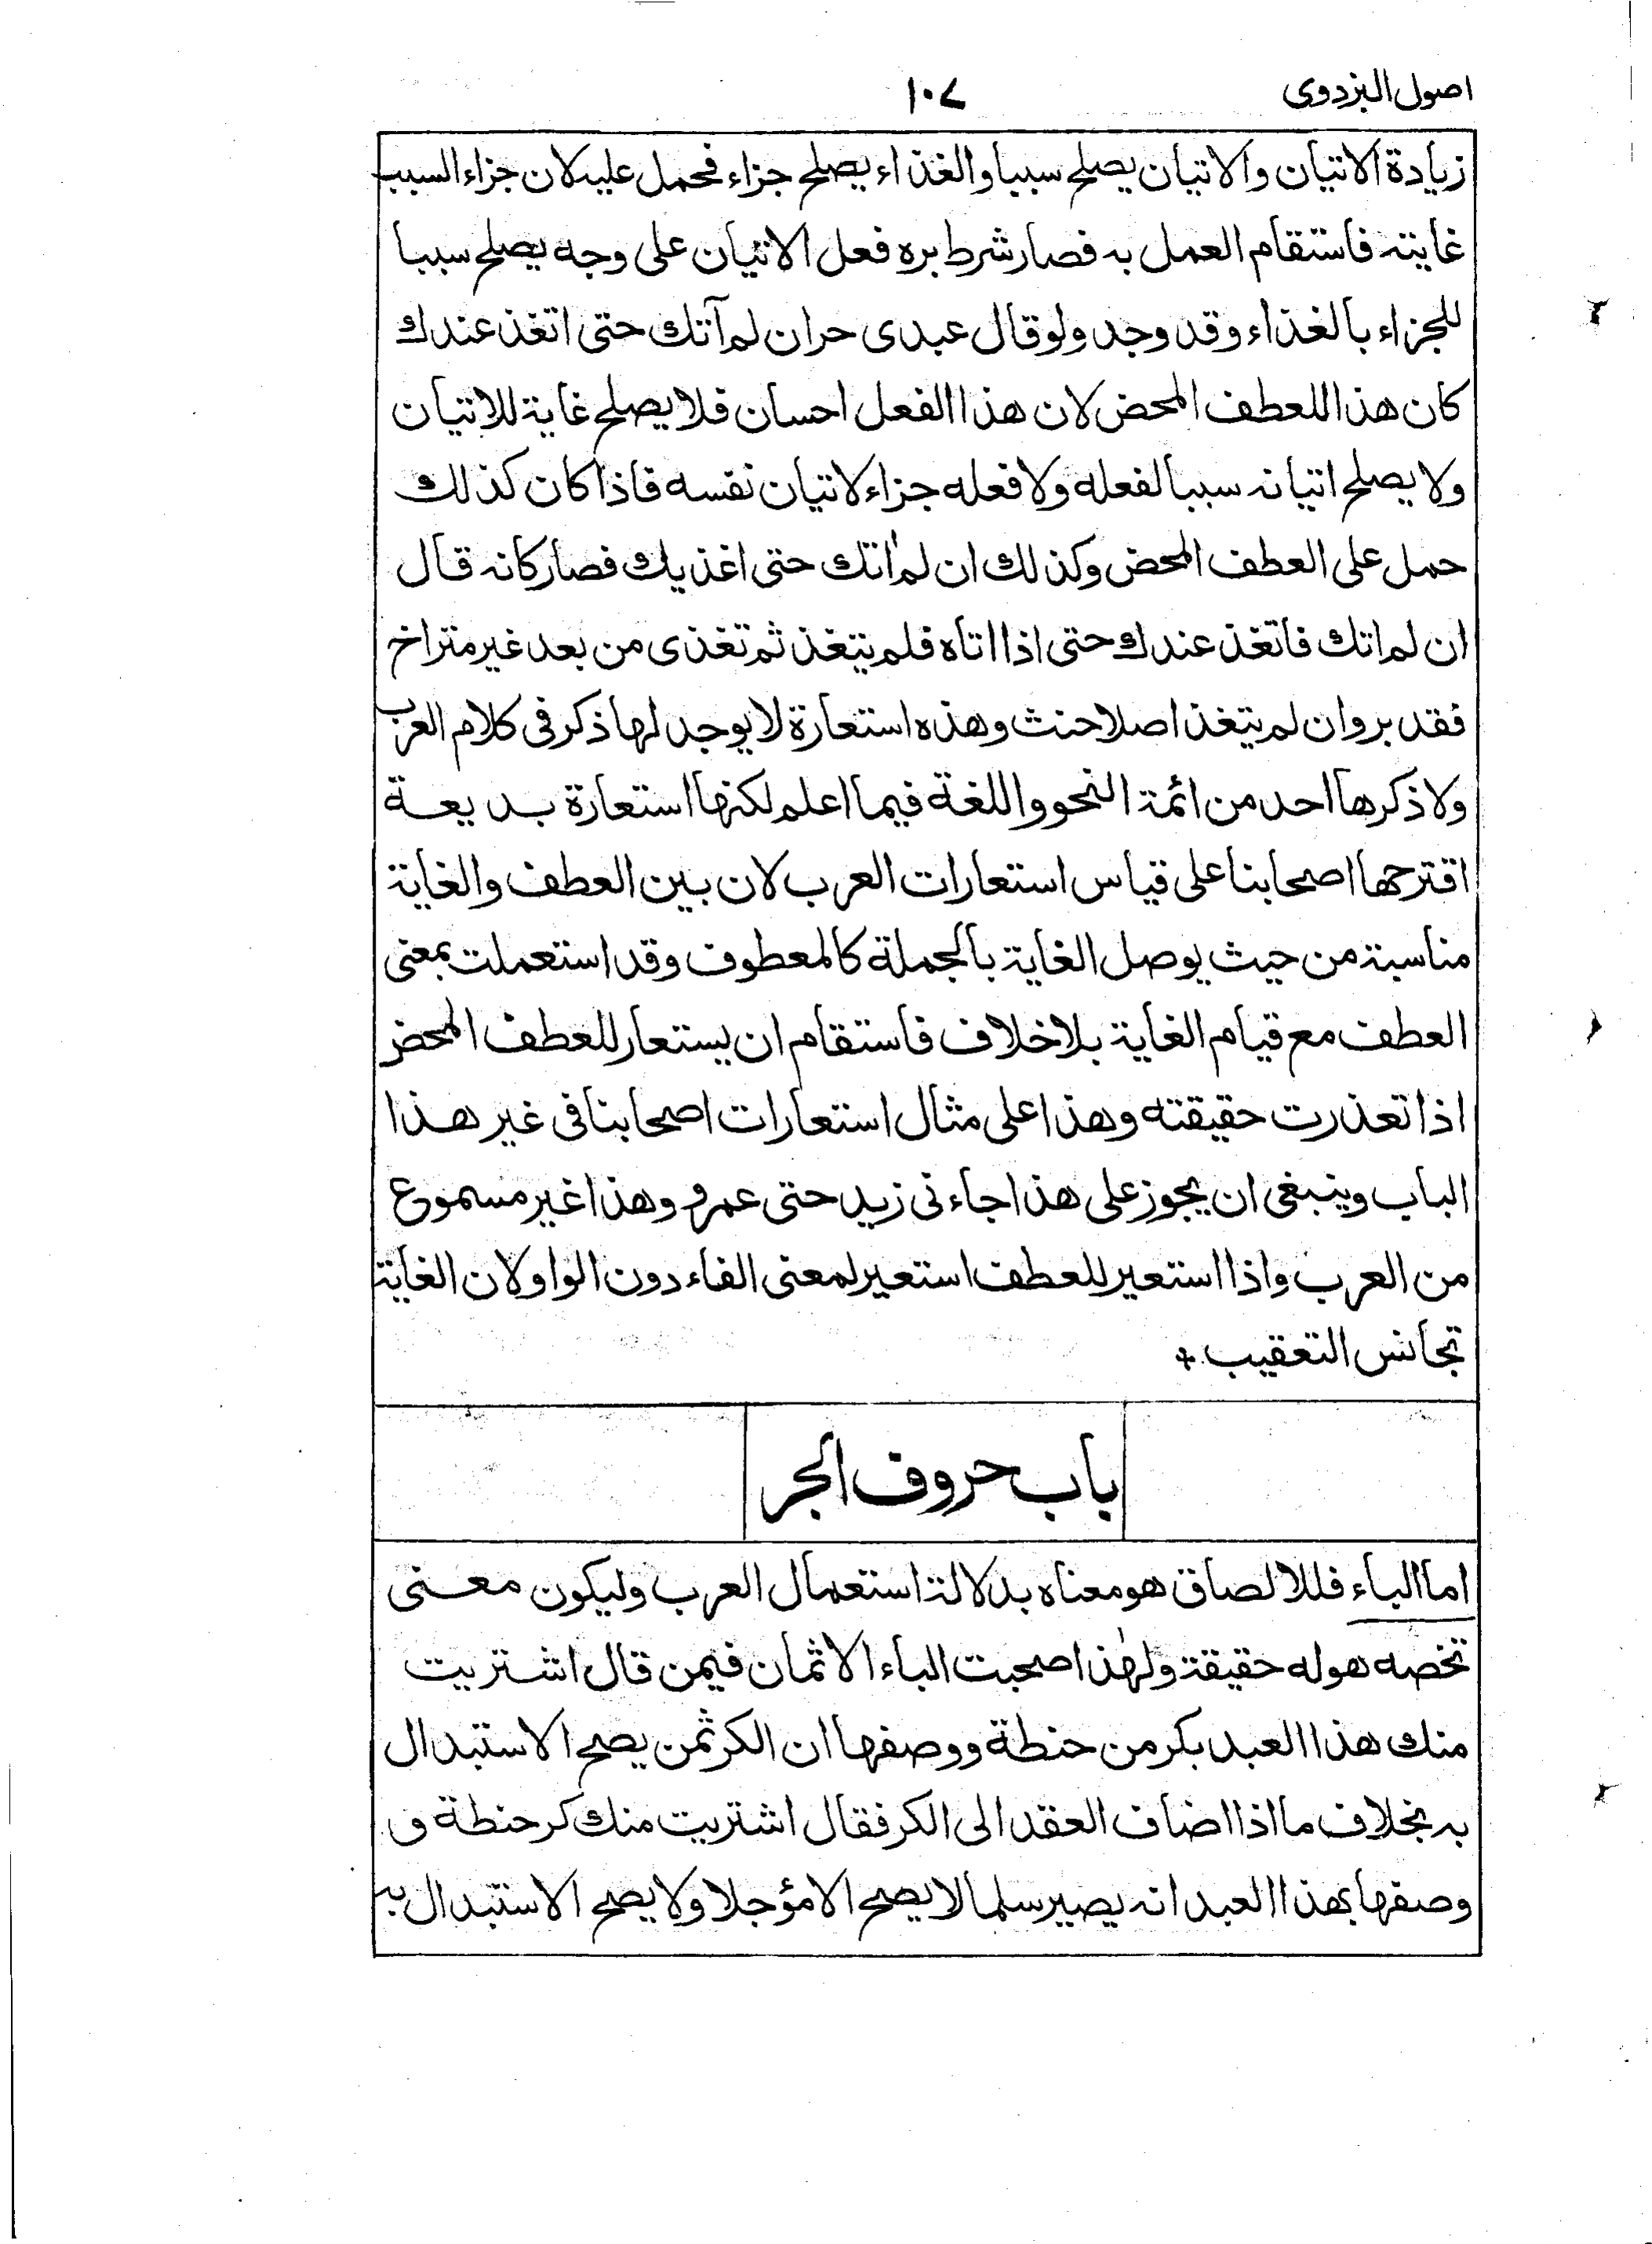 اصول البزدوى
١٠٧
زيادة الاتيان والاتيان يصلح سببا والغذاء يصلح جزاء فحمل عليه لان جزاء السبب
غايته فاستقام العمل به فصار شرط بره فعل الاتيان على وجه يصلح سببا
للجزاء بالغذاء وقد وجد ولو قال عبدى حر ان لم آتك حتى اتغذ عندك
كان هذا للعطف المحض لان هذا الفعل احسان فلا يصلح غاية للاتيان
ولا يصلح اتيانه سببا لفعله ولا فعله جزاء لاتيان نفسه فاذا كان كذلك
حمل على العطف المحض وكذلك ان لم اتك حتى اغذيك فصار كانه قال
ان لم اتك فاتغذ عندك حتى اذا اتاه فلم يتغذ ثم تغذى من بعد غير متراخ
فقد بر وان لم يتغذ اصلا حنث وهذه استعارة لا يوجد لها ذكر فى كلام العرب
ولا ذكرها احد من ائمة النحو واللغة فيما اعلم لكنها استعارة بديعة
اقترحها اصحابنا على قياس استعارات العرب لان بين العطف والغاية
مناسبة من حيث يوصل الغاية بالجملة كالمعطوف وقد استعملت بمعنى
العطف مع قيام الغاية بلا خلاف فاستقام ان يستعار للعطف المحض
اذا تعذرت حقيقته وهذا على مثال استعارات اصحابنا فى غير هذا
الباب وينبغى ان يجوز على هذا جاءنى زيد حتى عمرو وهذا غير مسموع
من العرب واذا استعير للعطف استعير لمعنى الفاء دون الواو لان الغاية
تجانس التعقيب +
باب حروف الجر
اما الباء فللالصاق هو معناه بدلالة استعمال العرب وليكون معنى
تخصه هو له حقيقة ولهٰذا صحبت الباء الاثمان فيمن قال اشتريت
منك هذا العبد بكر من حنطة ووصفها ان الكر ثمن يصح الاستبدال
به بخلاف ما اذا اضاف العقد الى الكر فقال اشتريت منك كر حنطة و
وصفها بهذا العبد انه يصير سلما لا يصح الا مؤجلا ولا يصح الاستبدال به